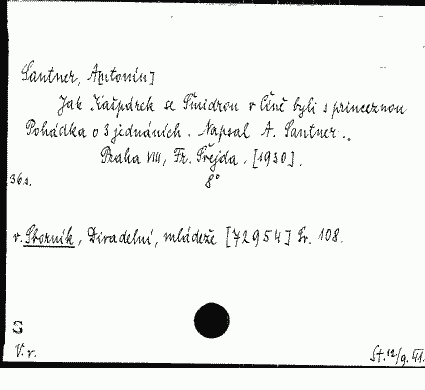 Santner, A[ntonín]
Jak Kašpárek se Šmidrou v Číně byli s princeznou
Pohádka o 3 jednáních. Napsal A. Santner..
Praha VIII, Fr. Švejda. [1930].
36 s. 8°
v. Sborník, Divadelní, mládeže [72954] Sv. 108.
S
V. r. St. 12/9. VI.